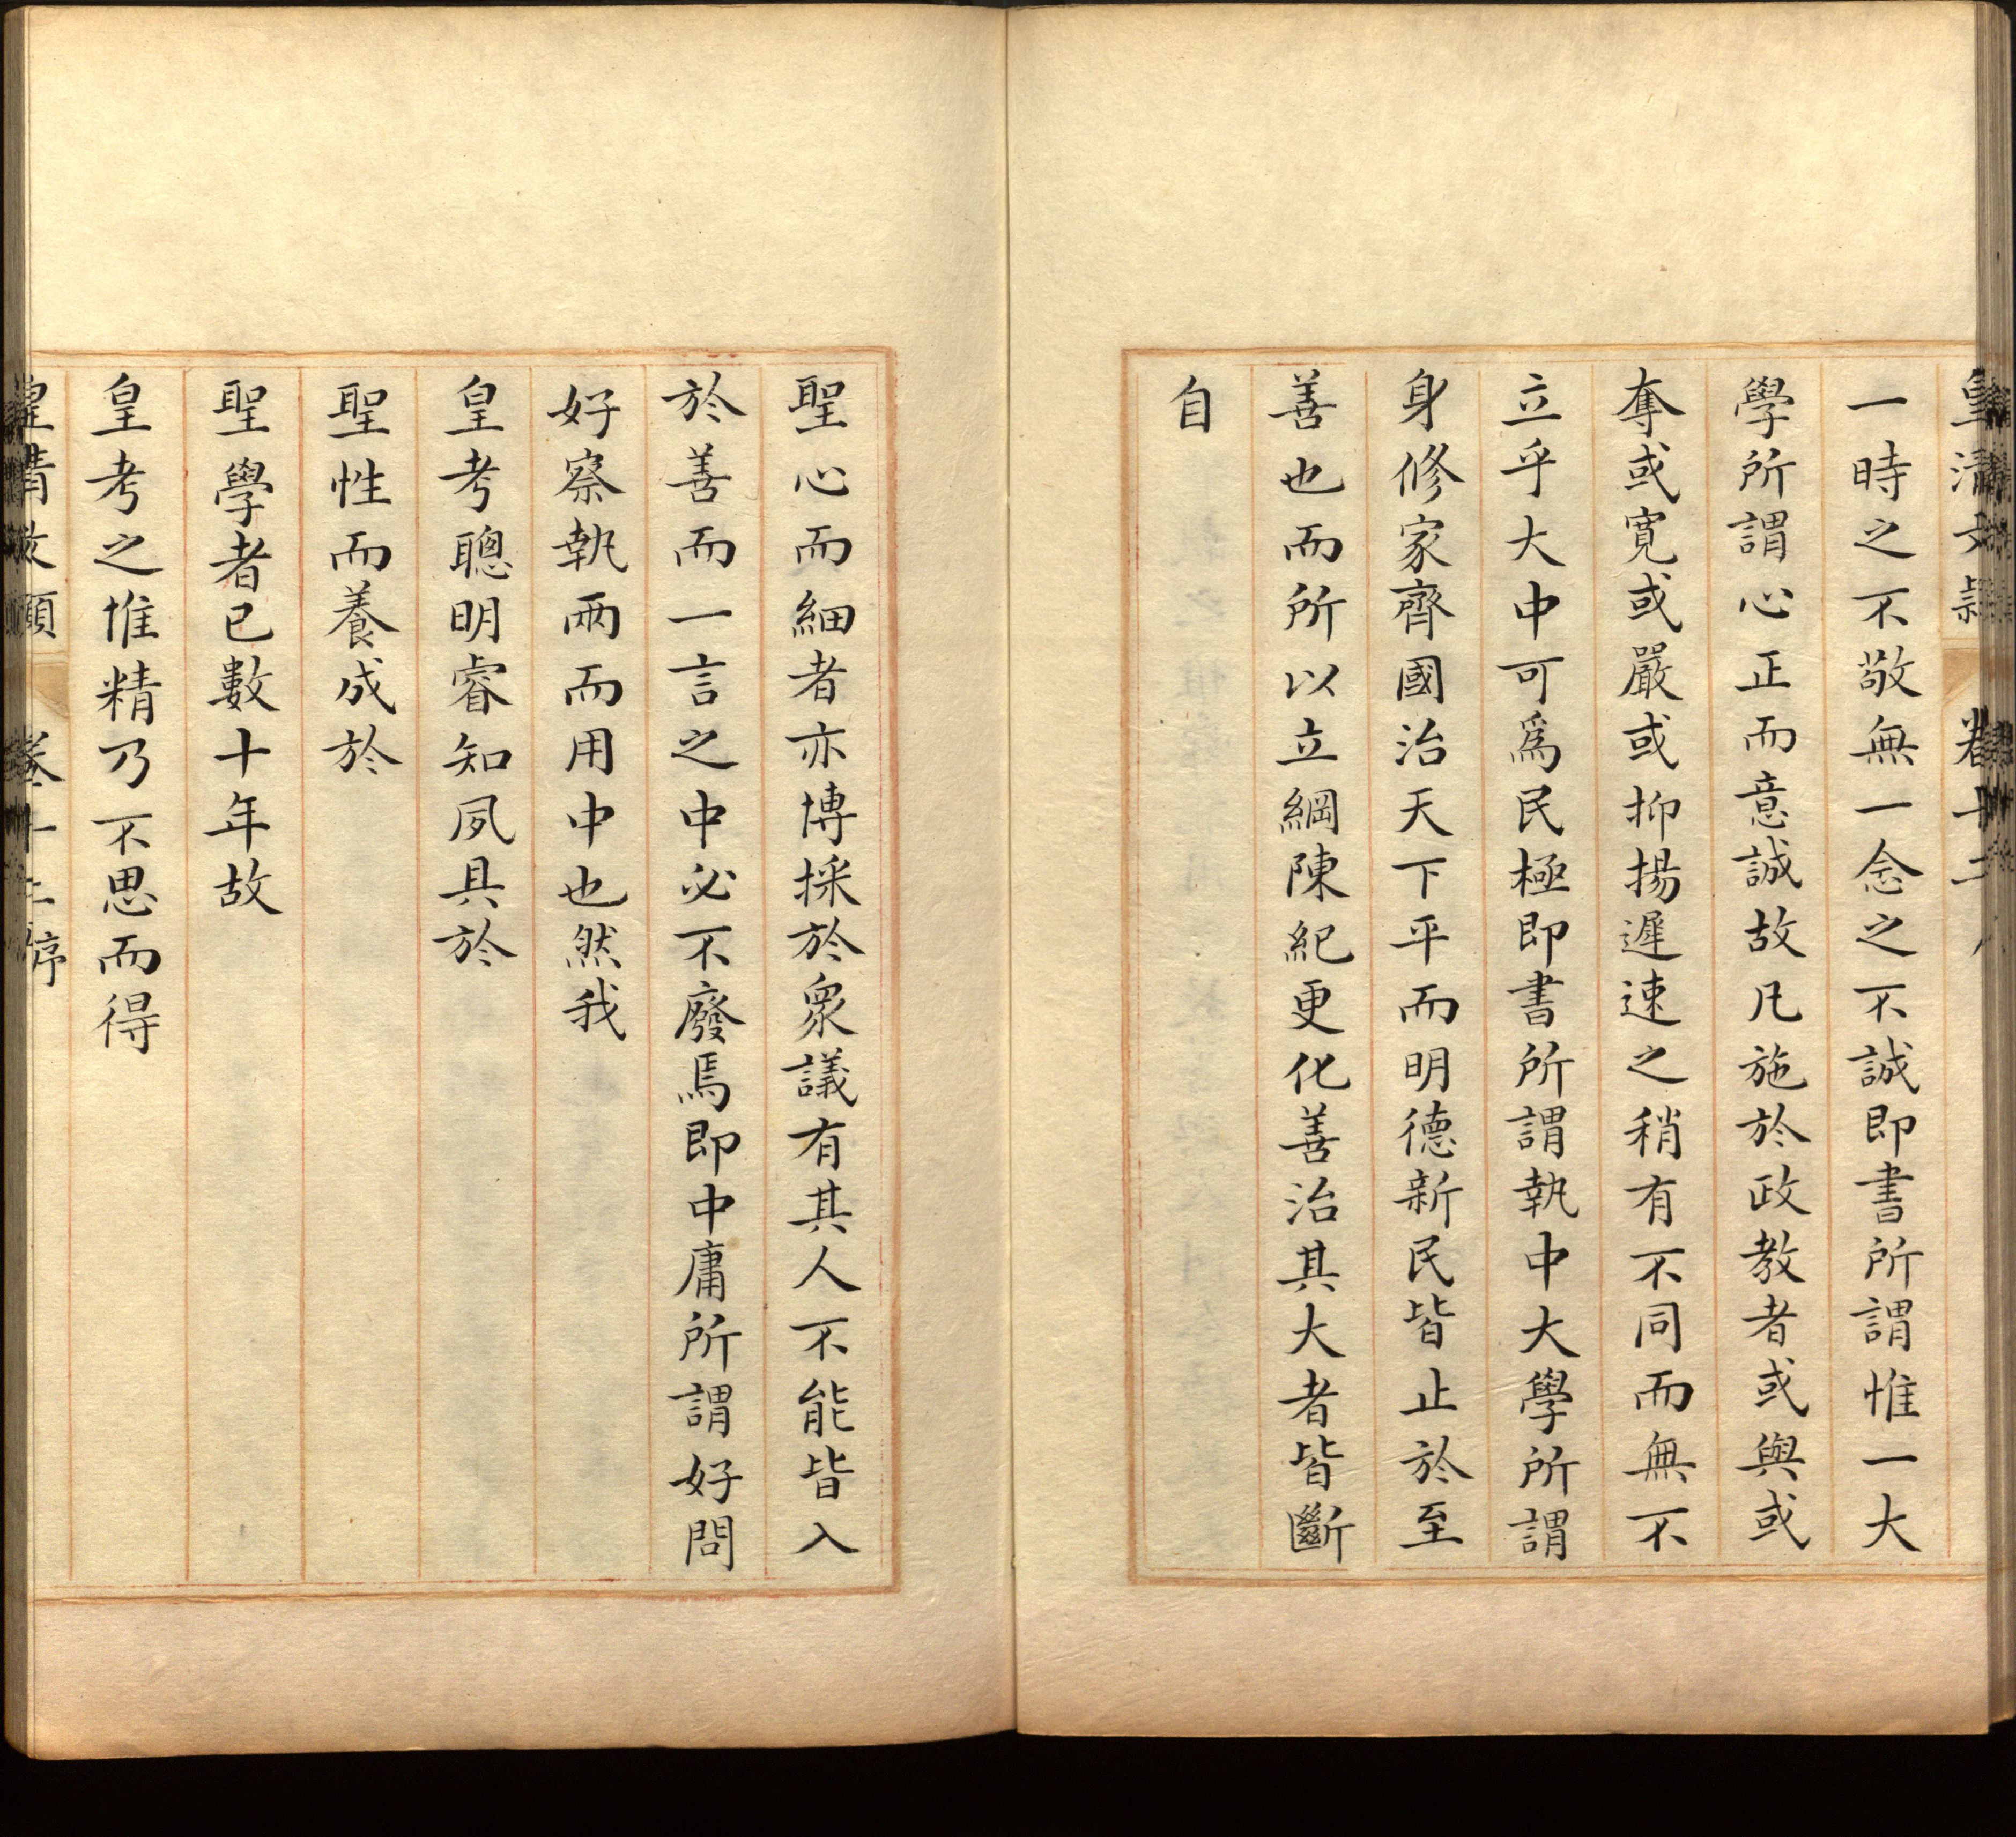 皇清文穎 卷十二
一時之不敬無一念之不誠即書所謂惟一大
學所謂心正而意誠故凡施於政教者或與或
奪或寬或嚴或抑揚遲速之稍有不同而無不
立乎大中可爲民極即書所謂執中大學所謂
身修家齊國治天下平而明德新民皆止於至
善也而所以立綱陳紀更化善治其大者皆斷
自
聖心而細者亦博採於衆議有其人不能皆入
於善而一言之中必不廢焉即中庸所謂好問
好察執兩而用中也然我
皇考聰明睿知夙具於
聖性而養成於
聖學者已數十年故
皇考之惟精乃不思而得
皇清文穎 卷十二